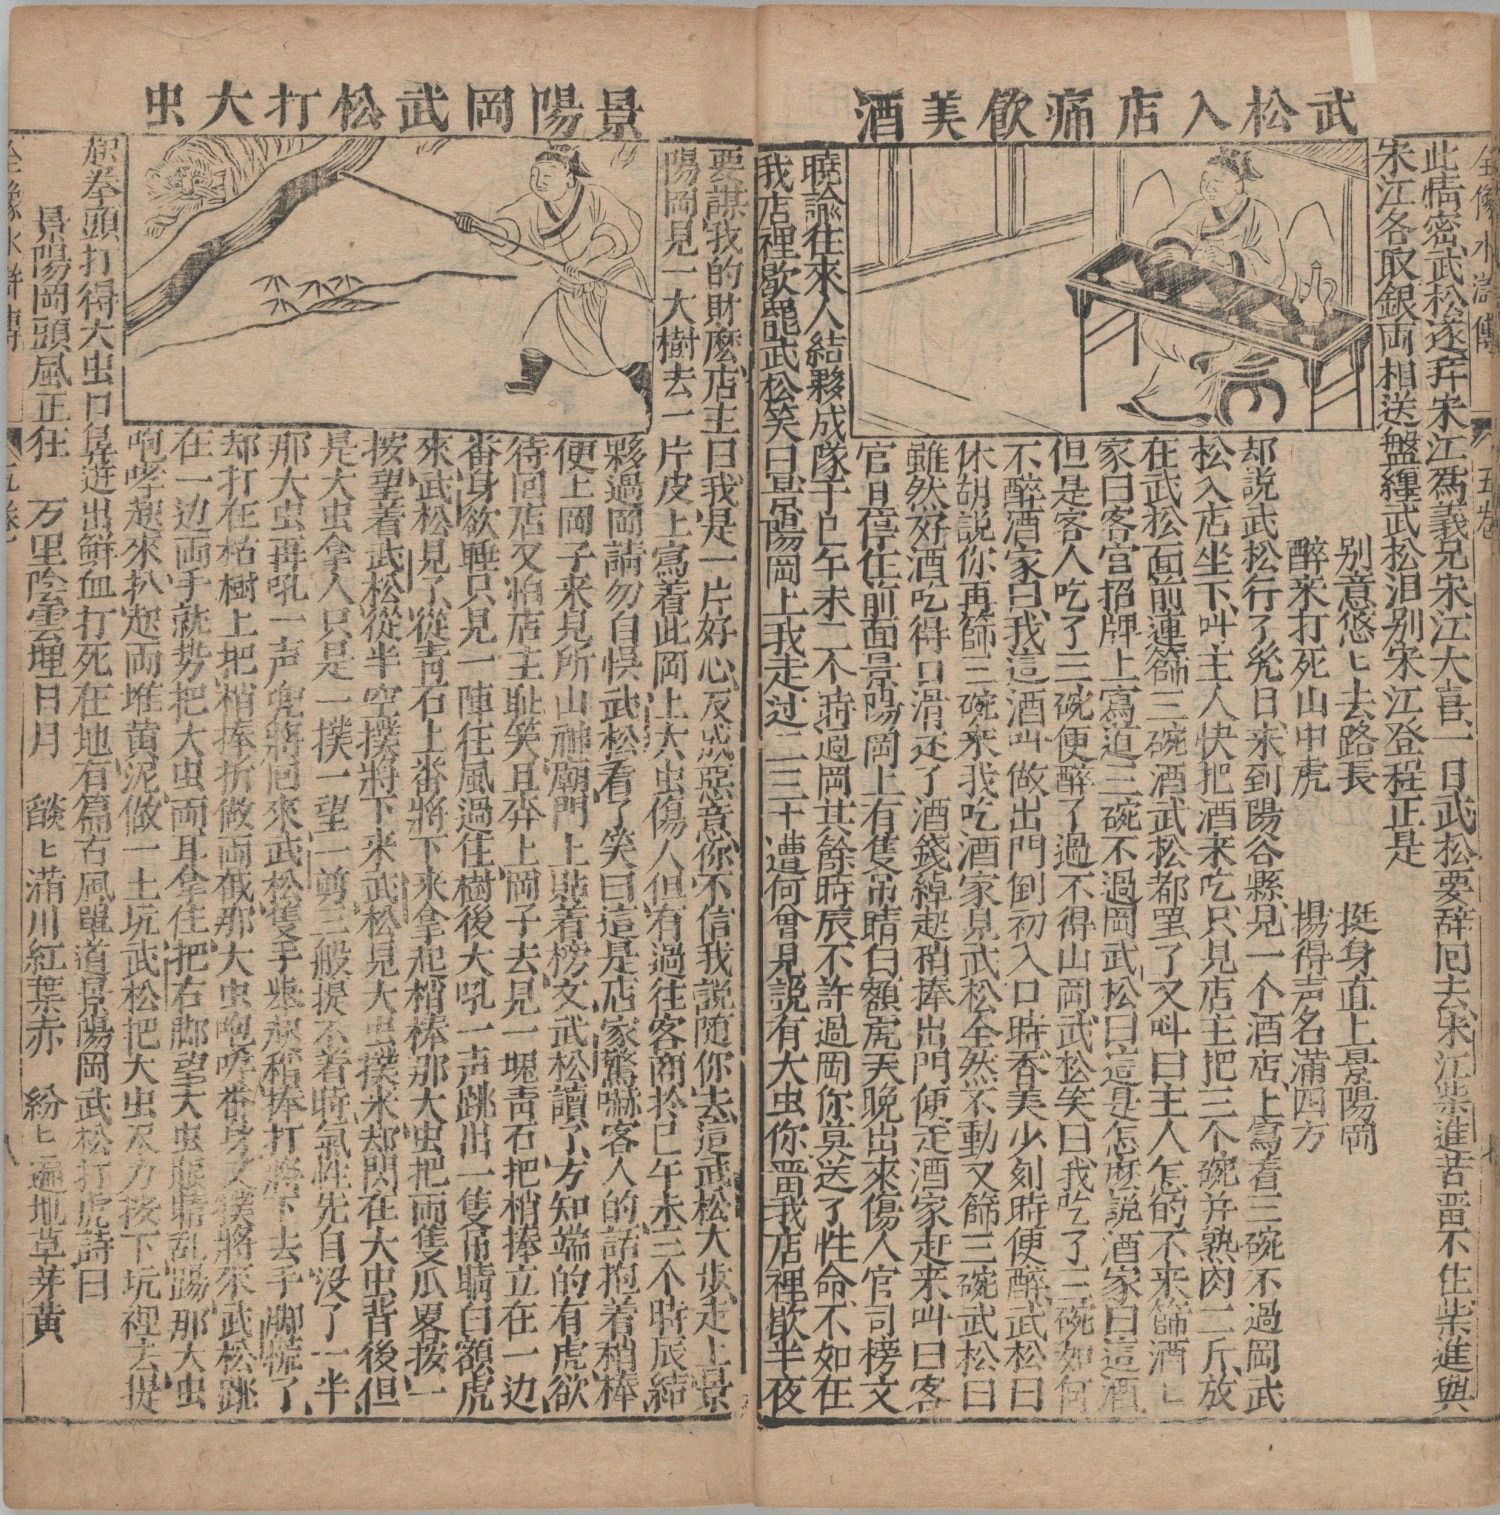 武松入店痛飲美酒
全像水滸傳
五卷
此情密武松遂拜宋江爲義兄宋江大喜一日武松要辞囘去宋江柴進苦畱不住柴進與
宋江各取銀両相送盤纏武松泪別宋江登程正是
別意悠〻去路長 挺身直上景陽岡
醉来打死山中虎 楊得声名滿四方
却説武松行了幾日来到陽谷縣見一个酒店上寫着三碗不過岡武
松入店坐下叫主人快把酒来吃只見店主把三个碗并熟肉二斤放
在武松面前連篩三碗酒武松都望了又叫曰主人怎的不来篩酒〻
家曰客官招牌上寫道三碗不過岡武松曰這是怎麽説酒家曰這酒
但是客人吃了三碗便醉了過不得山岡武松笑曰我吃了三碗如何
不醉酒家曰我這酒叫做出門倒初入口時香美少刻時便醉武松曰
休胡説你再篩三碗来我吃酒家見武松全然不動又篩三碗武松曰
雖然好酒吃得口滑还了酒錢綽起稍捧出門便走酒家赶来叫曰客
官且停住前面景陽岡上有隻吊睛白額虎天晚出來傷人官司榜文
曉諭往來人結夥成隊于巳午未三个時過岡其餘時辰不許過岡你莫送了性命不如在
我店裡歇罷武松笑曰景陽岡上我走过二三十遭何曾見説有大虫你畱我店裡歇半夜
景陽岡武松打大虫
要謀我的財麽店主曰我是一片好心反成惡意你不信我説随你去這武松大歩走上景
陽岡見一大樹去一片皮上寫着此岡上大虫傷人但有過往客商扵巳午未三个時辰結
夥過岡請勿自悞武松看了笑曰這是店家驚嚇客人的話抱着稍棒
便上岡子来見所山神廟門上貼着榜文武松讀了方知端的有虎欲
待回店又怕店主耻笑且奔上岡子去見一塊靑石把梢捧立在一边
番身欲睡只見一陣狂風過住樹後大吼一声跳出一隻吊睛白額虎
來武松見了從靑石上番將下來拿起梢棒那大虫把両隻瓜畧按一
按望着武松從半空撲將下來武松見大虫撲來却閃在大虫背後但
是大虫拿人只是一撲一望一剪三般提不着時氣性先自没了一半
那大虫再吼一声兜將囘來武松隻手舉起稍捧打將下去手脚慌了
却打在枯樹上把稍捧折做両截那大虫咆哮番身又撲將來武松跳
在一边両手就势把大虫両耳拿住把右脚望大虫眼睛乱踢那大虫
咆哮起來扒起両堆黄泥做一土坑武松把大虫尽力按下坑裡去提
起拳頭打得大虫口鼻迸出鮮血打死在地有篇古風單道景陽岡武松打虎詩曰
景陽岡頭風正狂 万里陰雲埋日月 燄〻滿川紅葉赤 紛〻遍地草芽黄
全像水滸傳
五卷
八